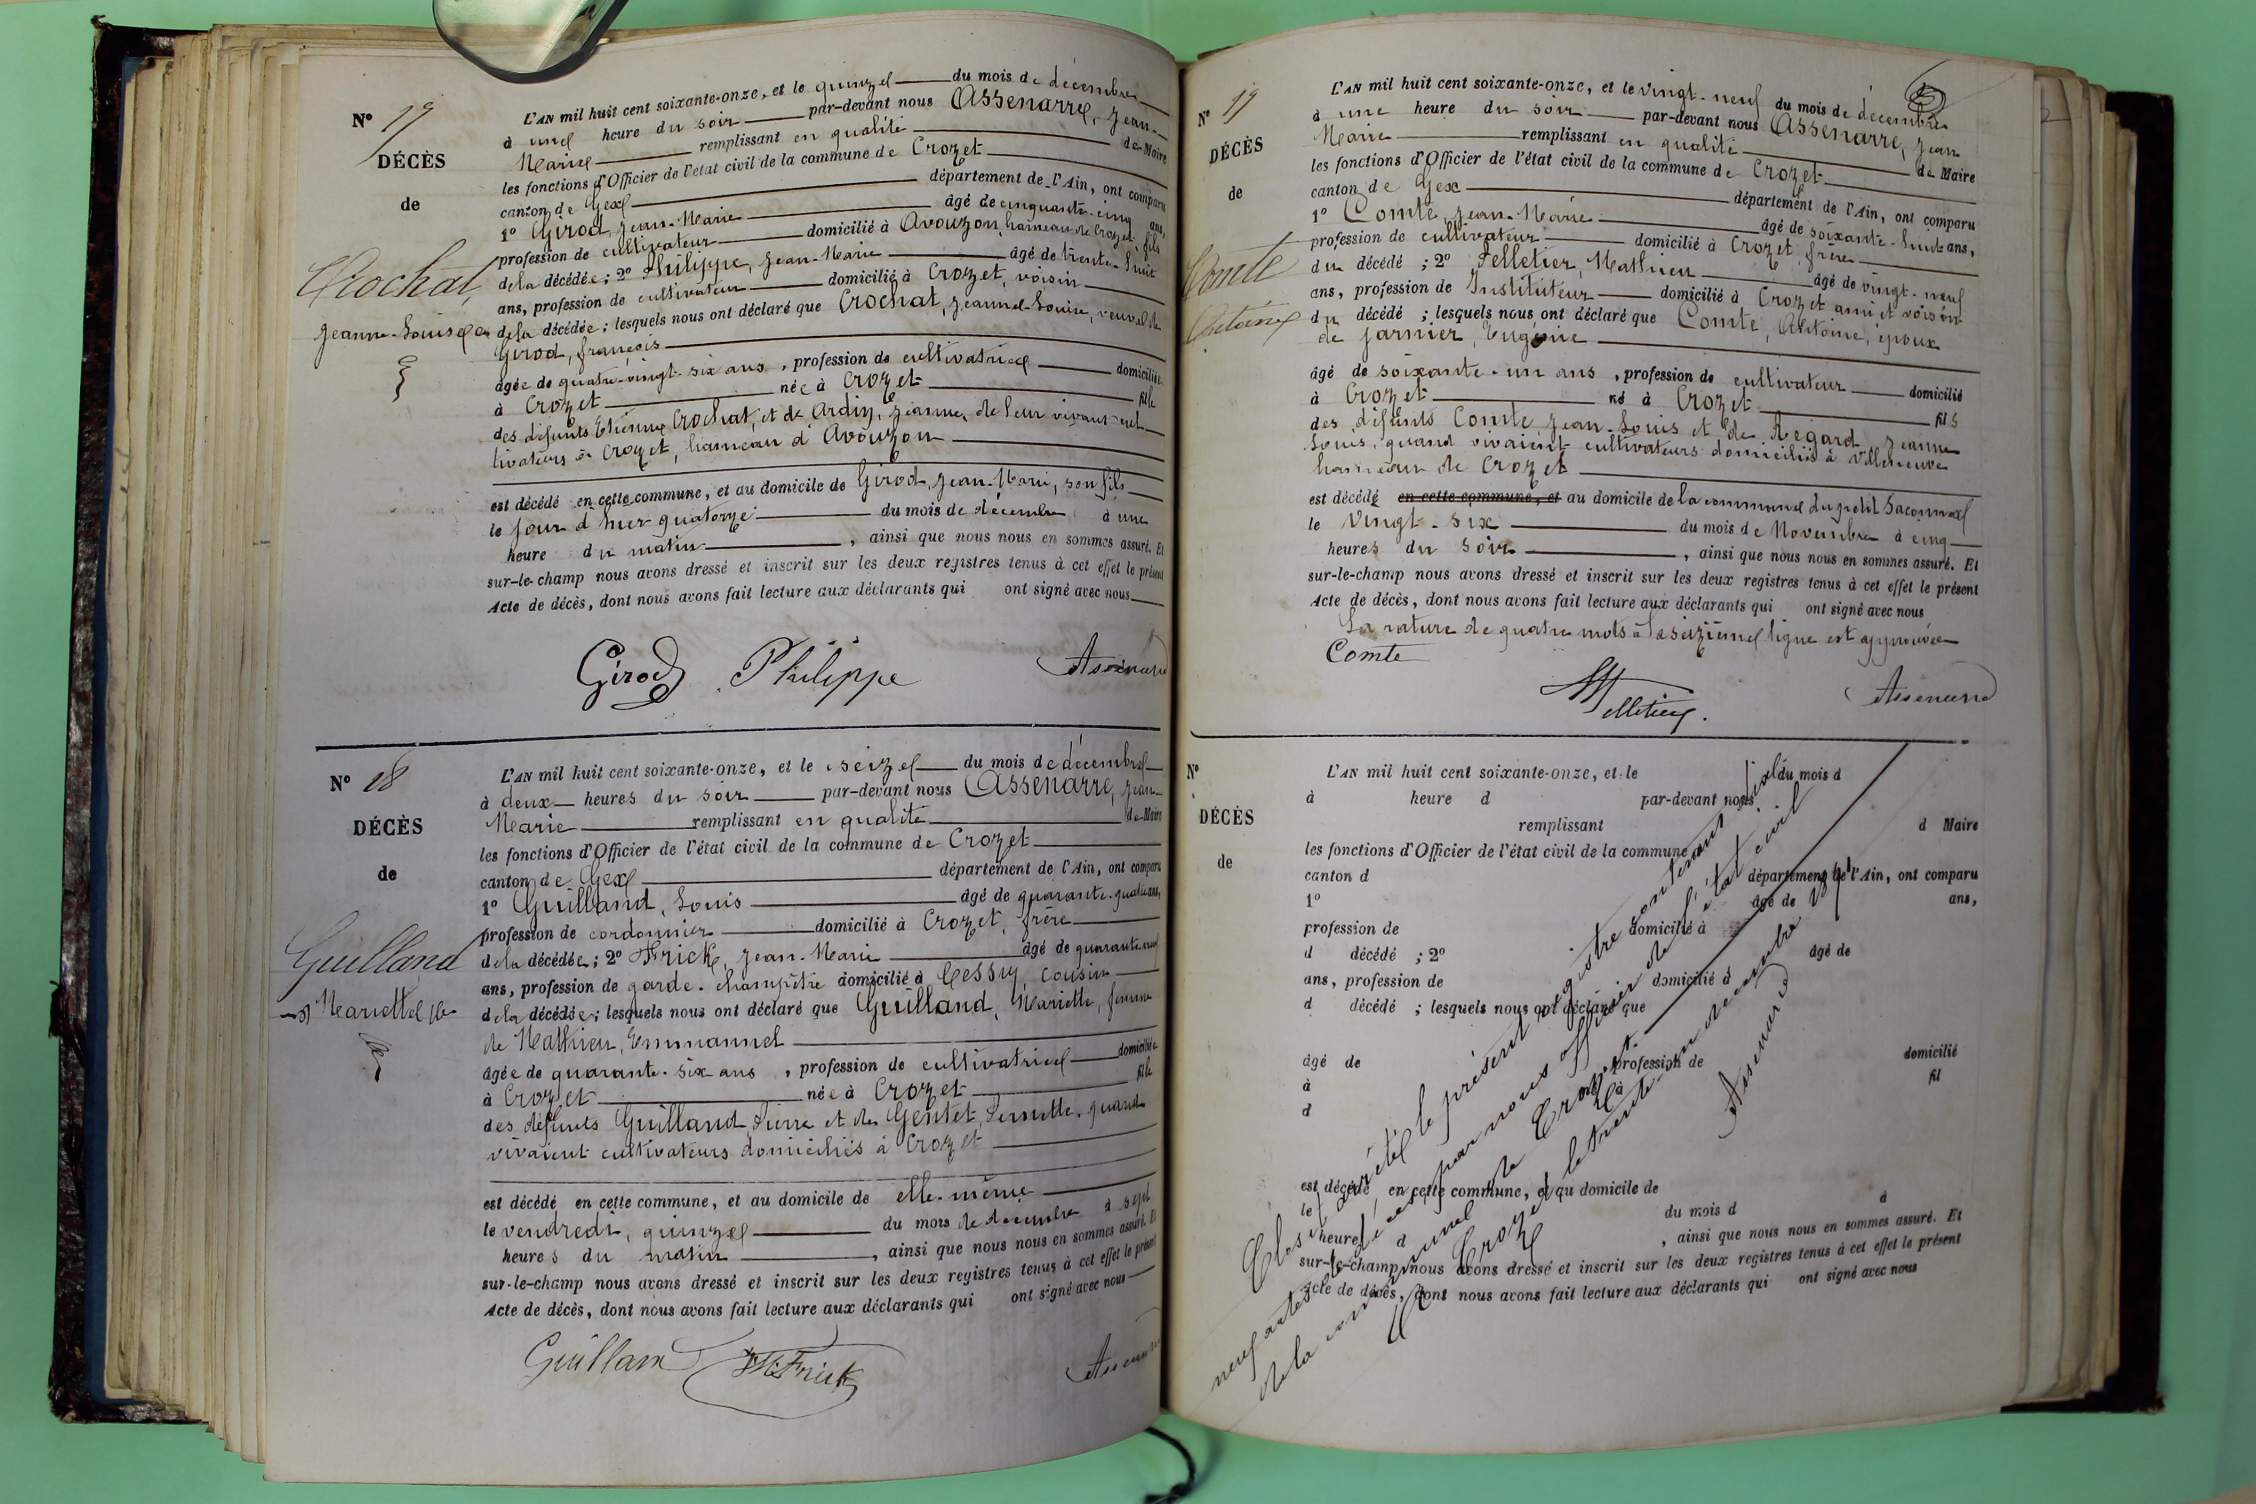 N° 17
DÉCÈS
de
Crochat,
Jeanne-Louise
L'AN mil huit cent soixante-onze, et le quinze du mois de décembre
à une heure du soir par-devant nous Assenarre, Jean-
Marie remplissant en qualité de Maire
les fonctions d'Officier de l'état civil de la commune de Crozet
canton de Gex département de l'Ain, ont comparu
1° Girod, Jean-Marie âgé de cinquante-cinq ans,
profession de cultivateur domicilié à Avouzon, hameau de Crozet, fils
de la décédée ; 2° Philippe, Jean-Marie âgé de trente-huit
ans, profession de cultivateur domicilié à Crozet, voisin
de la décédée ; lesquels nous ont déclaré que Crochat, Jeanne-Louise, veuve de
Girod, françois
âgée de quatre-vingt-six ans, profession de cultivatrice domiciliée
à Crozet née à Crozet fille
des défunts Etienne Crochat, et de Ardin, Jeanne, de leur vivant cul-
tivateurs à Crozet, hameau d'Avouzon
est décédé en cette commune, et au domicile de Girod, Jean-Marie, son fils
le jour d'hier quatorze du mois de décembre à une
heure du matin, ainsi que nous nous en sommes assuré. Et
sur-le-champ nous avons dressé et inscrit sur les deux registres tenus à cet effet le présent
Acte de décès, dont nous avons fait lecture aux déclarants qui ont signé avec nous
Girod Philippe Assenarre
N° 18
DÉCÈS
de
Guilland
Mariette
L'AN mil huit cent soixante-onze, et le seize du mois de décembre
à deux heures du soir par-devant nous Assenarre, Jean-
Marie remplissant en qualité de Maire
les fonctions d'Officier de l'état civil de la commune de Crozet
canton de Gex département de l'Ain, ont comparu
1° Guilland, Louis âgé de quarante-quatre ans,
profession de cordonnier domicilié à Crozet, frère
de la décédée ; 2° Frick, Jean-Marie âgé de quarante-neuf
ans, profession de garde-champêtre domicilié à Cessy, cousin
de la décédée ; lesquels nous ont déclaré que Guilland, Mariette, femme
de Mathieu, Emmanuel
âgée de quarante-six ans, profession de cultivatrice domiciliée
à Crozet née à Crozet fille
des défunts Guilland, Pierre et de Gentet, Pernette, quand
vivaient cultivateurs domiciliés à Crozet
est décédé en cette commune, et au domicile de elle-même
le vendredi, quinze du mois de décembre à sept
heures du matin, ainsi que nous nous en sommes assuré. Et
sur-le-champ nous avons dressé et inscrit sur les deux registres tenus à cet effet le présent
Acte de décès, dont nous avons fait lecture aux déclarants qui ont signé avec nous
Guilland Frick Assenarre
N° 19
DÉCÈS
de
Comte
Antoine
L'AN mil huit cent soixante-onze, et le vingt-neuf du mois de décembre
à une heure du soir par-devant nous Assenarre, Jean
Marie remplissant en qualité de Maire
les fonctions d'Officier de l'état civil de la commune de Crozet
canton de Gex département de l'Ain, ont comparu
1° Comte, Jean-Marie âgé de soixante-huit ans,
profession de cultivateur domicilié à Crozet, frère
du décédé ; 2° Pelletier, Mathieu âgé de vingt-neuf
ans, profession de Instituteur domicilié à Crozet ami et voisin
du décédé ; lesquels nous ont déclaré que Comte, Antoine, époux
de Jarnier, Eugénie
âgé de soixante-un ans, profession de cultivateur domicilié
à Crozet né à Crozet fils
des défunts Comte, Jean-Louis et de Regard, Jeanne
Louis, quand vivaient cultivateurs domiciliés à Villeneuve
hameau de Crozet
est décédé en cette commune, et au domicile de la commune du petit Saconnex
le vingt-six du mois de Novembre à cinq
heures du soir, ainsi que nous nous en sommes assuré. Et
sur-le-champ nous avons dressé et inscrit sur les deux registres tenus à cet effet le présent
Acte de décès, dont nous avons fait lecture aux déclarants qui ont signé avec nous
La rature de quatre mots à la seizième ligne est approuvée
Comte
Pelletier. Assenarre
N°
DÉCÈS
de
L'AN mil huit cent soixante-onze, et le du mois d
à heure d par-devant nous
remplissant d Maire
les fonctions d'Officier de l'état civil de la commune
canton d département de l'Ain, ont comparu
1° âgé de ans,
profession de domicilié à
d décédé ; 2° âgé de
ans, profession de domicilié à
d décédé ; lesquels nous ont déclaré que
âgé de profession de domicilié
à né à fil
d
est décédé en cette commune, et au domicile de
le du mois d à
heure d, ainsi que nous nous en sommes assuré. Et
sur-le-champ nous avons dressé et inscrit sur les deux registres tenus à cet effet le présent
Acte de décès, dont nous avons fait lecture aux déclarants qui ont signé avec nous
Clos et arrêté le présent registre contenant dix
neuf actes de décès, par nous officier de l'état civil
de la commune de Crozet
à Crozet, le trente-un décembre 1871
Assenarre